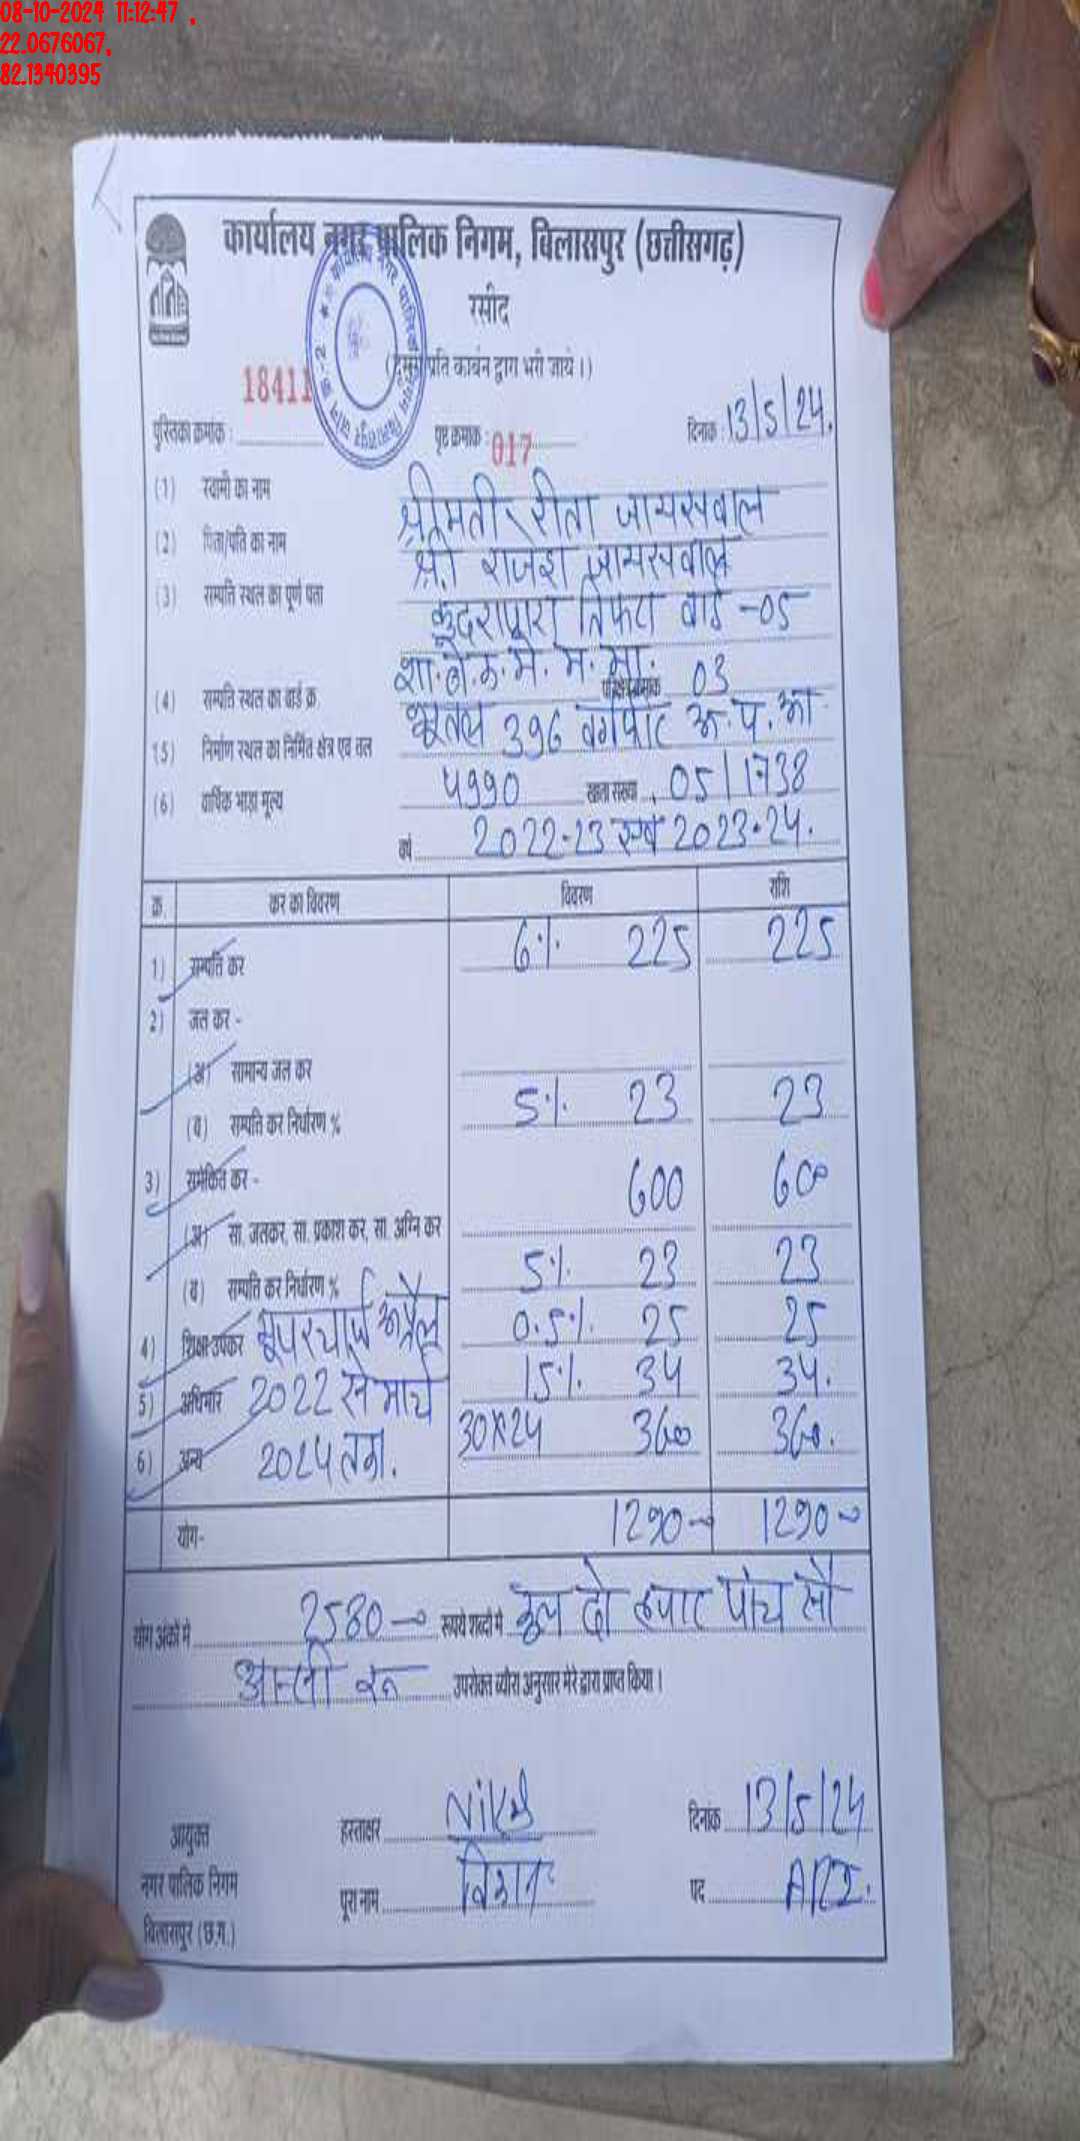 08-10-2024 11:12:47 ,
22.0676067,
82.1340395
कार्यालय नगर पालिक निगम, बिलासपुर (छत्तीसगढ़)
रसीद
(दूसरी प्रति कार्बन द्वारा भरी जाये।)
पुस्तिका क्रमांक : 18411 पृष्ठ क्रमांक : 017 दिनांक : 13/5/24.
(1) स्वामी का नाम श्रीमती रीता जायसवाल
(2) पिता/पति का नाम श्री राजेश जायसवाल
(3) सम्पति स्थल का पूर्ण पता कुदरापारा तिफरा वार्ड -05
शा. म. मा.
(4) सम्पति स्थल का वार्ड क्र. परिक्षेत्र क्रमांक 03
(5) निर्माण स्थल का निर्मित क्षेत्र एवं तल भूतल 396 वर्गफीट
(6) वार्षिक भाड़ा मूल्य 4990 खाता संख्या 05/1738
वर्ष 2022-23 एवं 2023-24.
क्र. कर का विवरण विवरण राशि
1) सम्पति कर 6% 225 225
2) जल कर -
(अ) सामान्य जल कर
(ब) सम्पति कर निर्धारण % 5% 23 23
3) समेकित कर - 600 600
(अ) सा. जलकर, सा. प्रकाश कर, सा. अग्नि कर
(ब) सम्पति कर निर्धारण % 5% 23 23
4) शिक्षा उपकर सूपरचार्ज अप्रैल 0.5% 25 25
5) अधिभार 2022 से मार्च 15% 34 34.
6) अन्य 2024 तक. 30x24 360 360.
योग- 1290 1290
योग अंकों में 2580 रूपये शब्दों में कुल दो हजार पांच सौ
अस्सी रू उपरोक्त ब्योरा अनुसार मेरे द्वारा प्राप्त किया।
आयुक्त
नगर पालिक निगम
बिलासपुर (छ.ग.)
हस्ताक्षर दिनांक 13/5/24
पूरा नाम पद ARI.